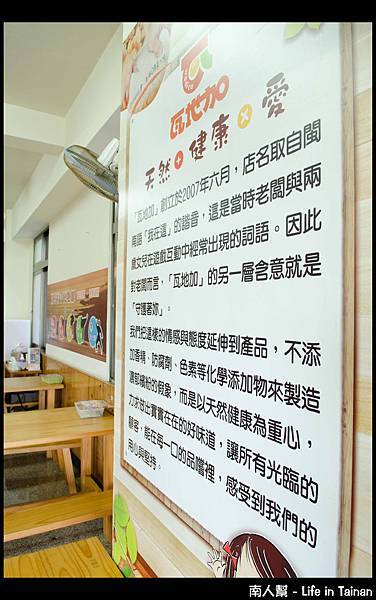 瓦地加
天然+健康×愛
「瓦地加」創立於2007年六月，店名取自閩
南語「我在這」的諧音，這是當時老闆與兩
歲女兒在遊戲互動中經常出現的詞語。因此
對老闆而言，「瓦地加」的另一層含意就是
「守護著妳」。
我們把這樣的情感與態度延伸到產品，不添
加香精、防腐劑、色素等化學添加物來製造
濃郁繽紛的假象，而是以天然健康為重心，
力求做出實實在在的好味道，讓所有光臨的
顧客，能在每一口的品嚐裡，感受到我們的
用心與堅持。
南人幫 - Life in Tainan